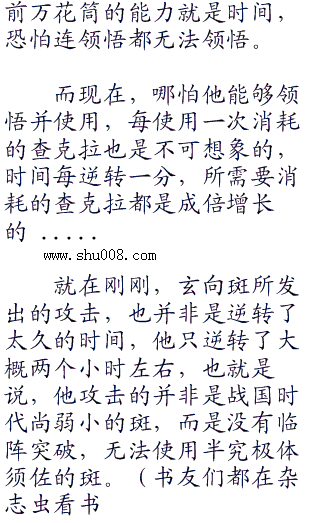 前万花筒的能力就是时间，
恐怕连领悟都无法领悟。
而现在，哪怕他能够领
悟并使用，每使用一次消耗
的查克拉也是不可想象的，
时间每逆转一分，所需要消
耗的查克拉都是成倍增长
的 .....
www.shu008.com
就在刚刚，玄向斑所发
出的攻击，也并非是逆转了
太久的时间，他只逆转了大
概两个小时左右，也就是
说，他攻击的并非是战国时
代尚弱小的斑，而是没有临
阵突破，无法使用半究极体
须佐的斑。（书友们都在杂
志虫看书